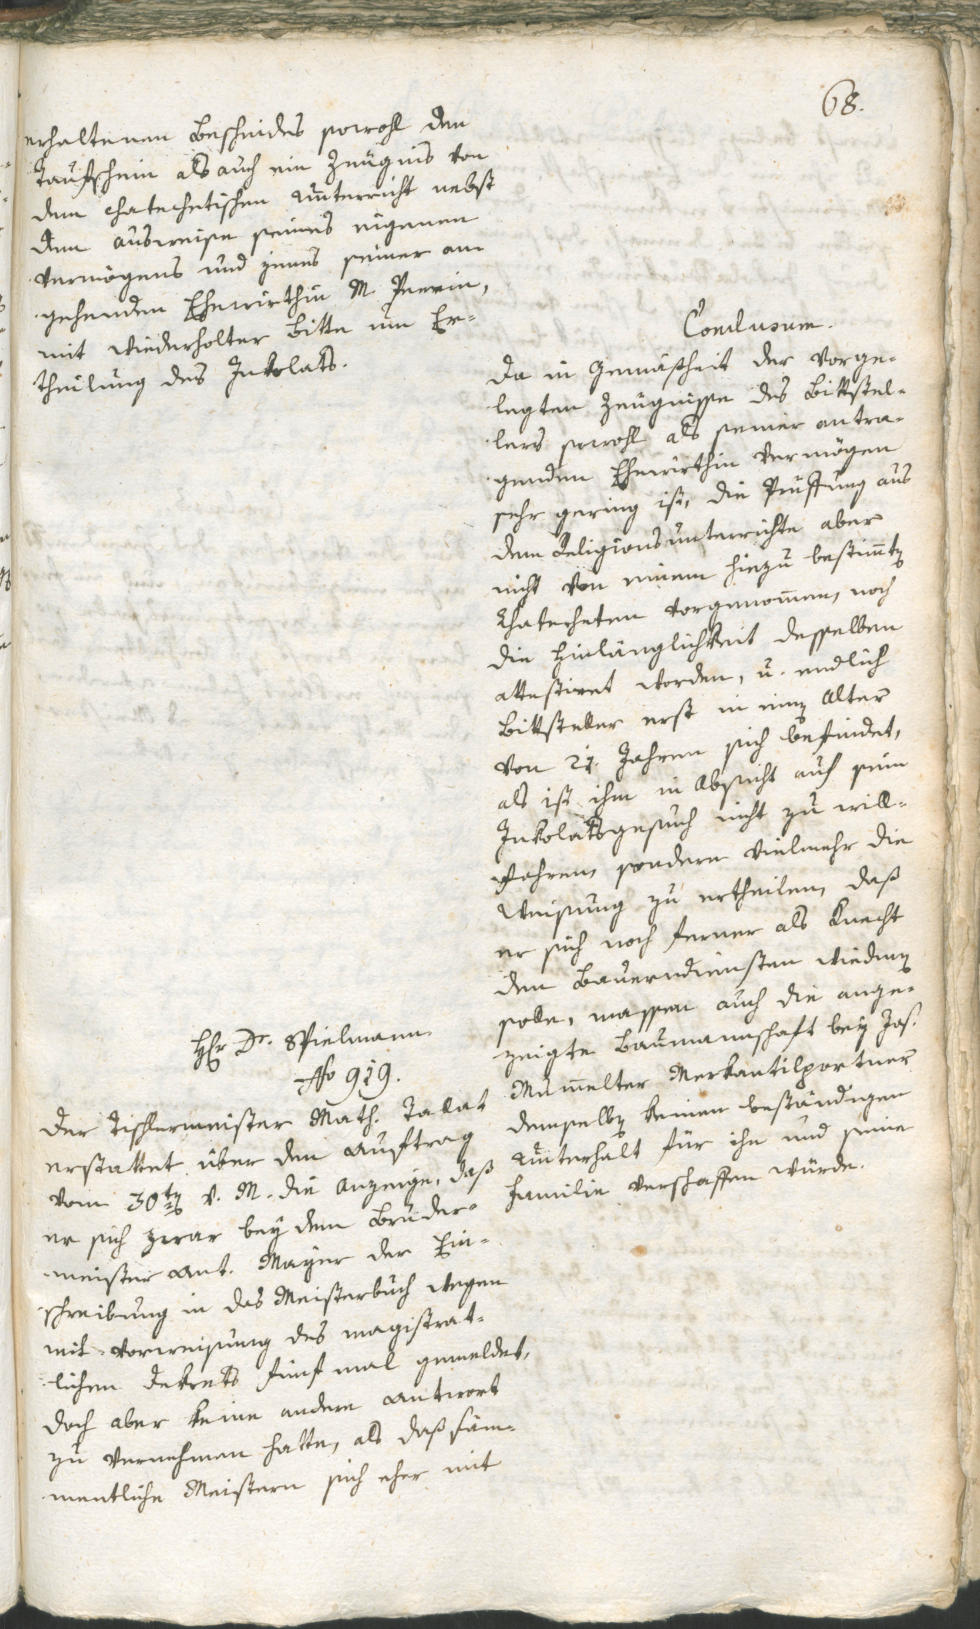 68.
erhaltenen Bescheides sowohl den
Taufschein als auch ein Zeugnis von
dem chatechetischen Unterricht nebst
dem ausweise seines eigenen
Vermögens und jenes seiner an-
gehenden Ehewirthin M.
mit wiederholter Bitte um Er-
theilung des Inkolats.
Conclusum.
Da in Gemäsheit der vorge-
legten Zeugnisse des Bittstel-
lers sowohl als seiner antra-
genden Ehewirthin Vermögen
sehr gering ist, die Prüffung aus
dem Religionsunterrichte aber
nicht von einem hiezu bestimten
Chatecheten vorgenommen, noch
die Hinlänglichkeit desselben
attestiret worden, u. endlich
Bittsteller erst in einem Alter
von 21 Jahren sich befindet,
als ist ihm in Absicht auf sein
Inkolatsgesuch nicht zu will-
fahren, sondern vielmehr die
Weisung zu ertheilen, daß
er sich noch ferner als Knecht
den Bauerndiensten wiedmen
solle, massen auch die ange-
zeigte Baumannschaft bey Jos.
Mumelter Merkantilportner
demselben keinen beständigen
Unterhalt für ihn und seine
Familie verschaffen würde.
Hr Dr. Spielmann
No 919.
Der Tischlermeister Math. Talat
erstattet über den Auftrag
vom 30ten v. M. die Anzeige, daß
er sich zwar bey dem Bruder-
meister Ant. Mayer der Ein-
schreibung in das Meisterbuch wegen
mit Vorweisung des magistrat-
lichen Dekrets fünf mal gemeldet,
doch aber keine andere Antwort
zu vernehmen hatte, als daß sam-
mentliche Meistern sich eher mit